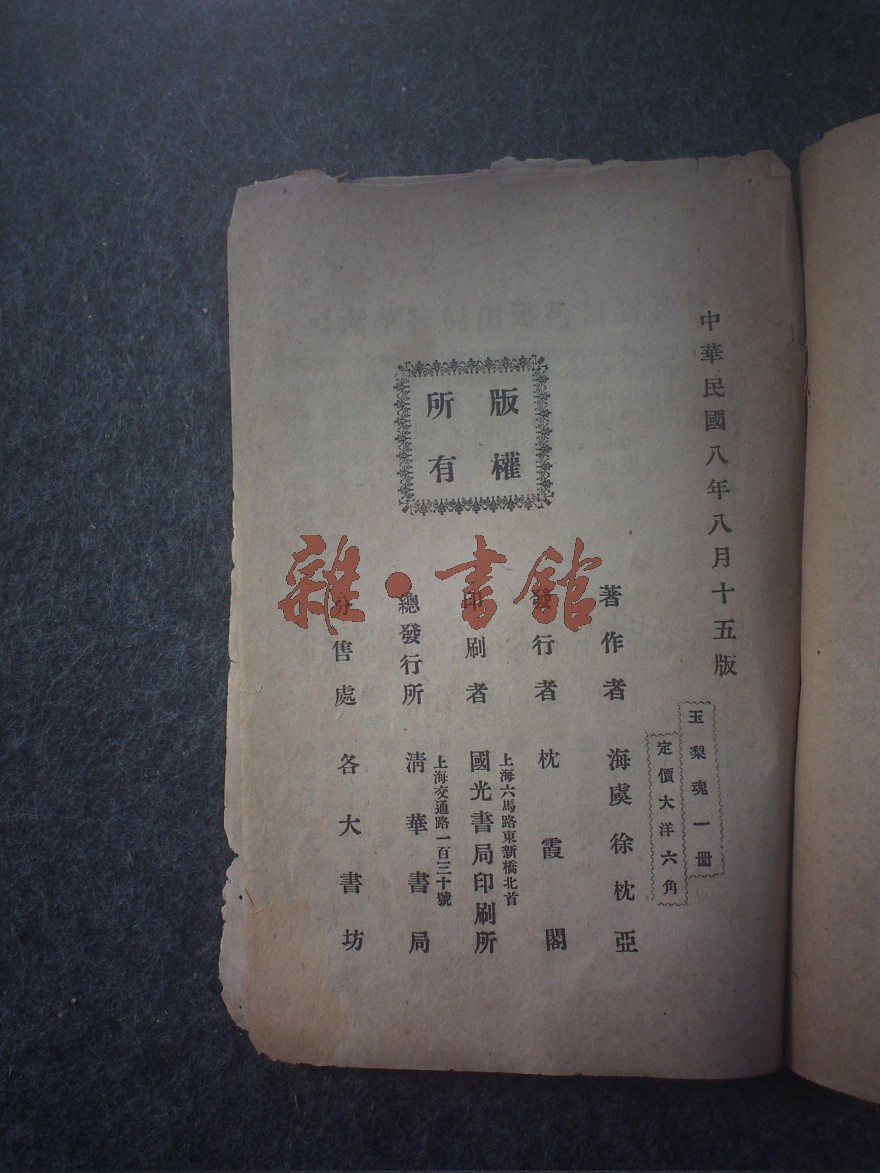 中華民國八年八月十五版
玉梨魂一冊
定價大洋六角
版權
所有
著作者 海虞徐枕亞
發行者 枕霞閣
上海六馬路東新橋北首
印刷者 國光書局印刷所
上海交通路一百三十號
總發行所 清華書局
分售處 各大書坊
雜·書館